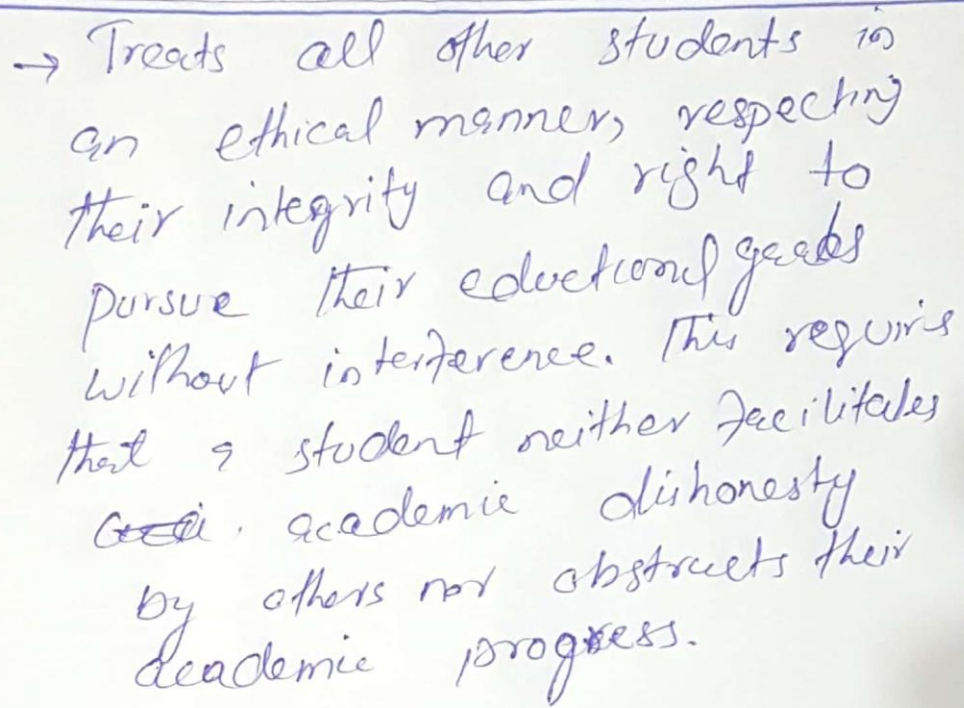 → Treats all other students in
an ethical manner, respecting
their integrity and right to
pursue their eductional goals
without interference. This requires
that a student neither facilitates
academic dishonesty
by others nor obstructs their
academic progress.